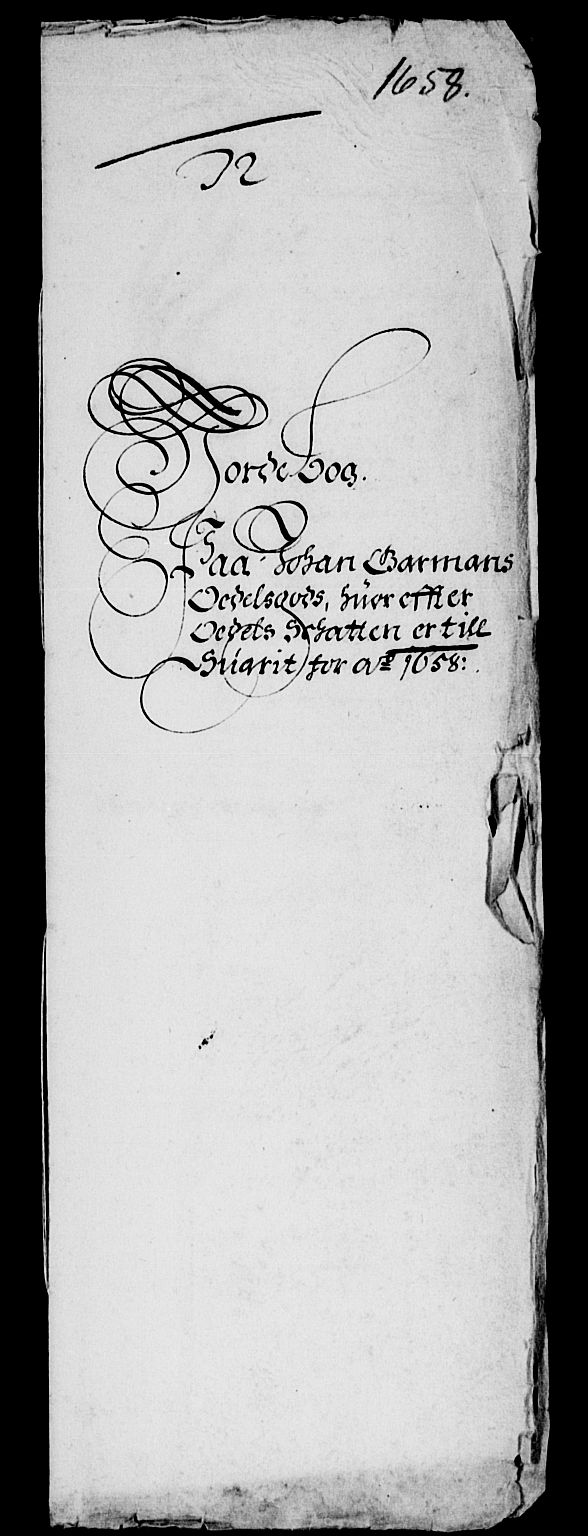 1658.
32
Jordebog.
Paa Johan Garmans
Oedelsgods, hüor effter
Oedels Schatten er till
Süarit for Aō 1658: